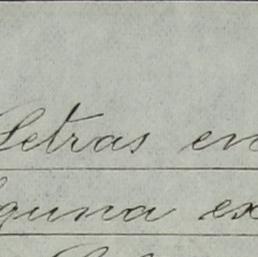 Letras en
guna ex